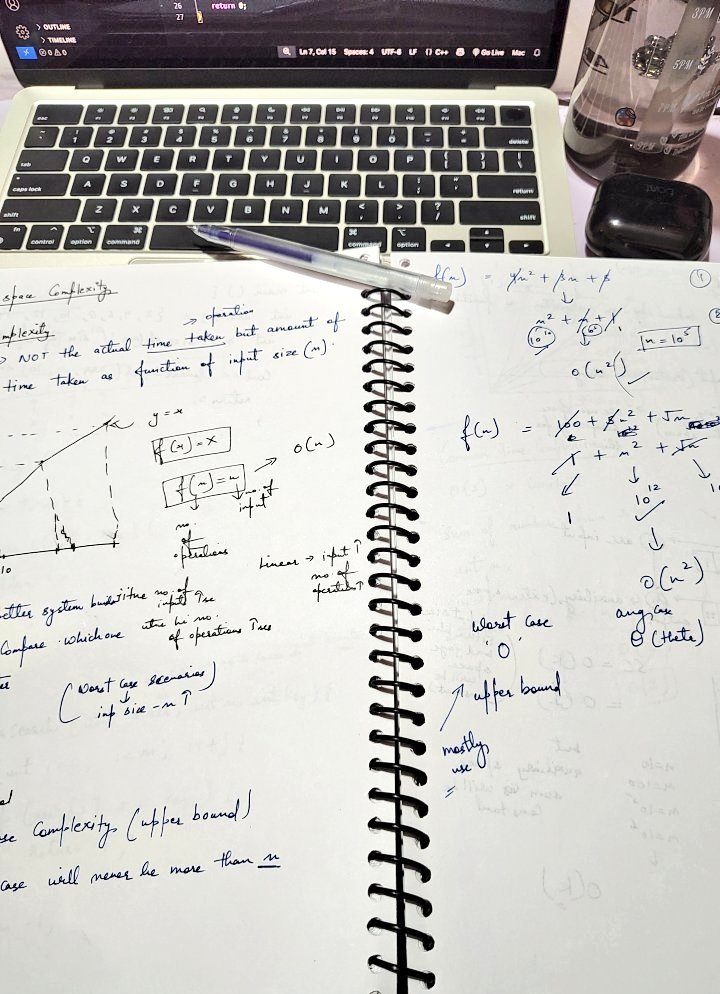 26 return 0;
27
OUTLINE
TIMELINE
0 0
Ln 7, Col 15 Spaces: 4 UTF-8 LF {} C++ Go Live Mac
3PM
5PM
esc
1 2 3 4 5 6 7 8 9 0 delete
tab Q W E R T Y U I O P
caps lock A S D F G H J K L return
shift Z X C V B N M shift
fn control option command command option
space Complexity
→ operation
→ NOT the actual time taken but amount of
time taken as function of input size (n).
y = x
f(x) = x
f(n) = n → O(n)
no. of operations
no. of input
10
Linear → input ↑
no. of
operation ↑
system
no. of
input ↑se
Compare which one
no.
of operations ↑ses
(Worst case scenarios)
↓
inp size - n ↑
Complexity (upper bound)
case will never be more than n
f(n) = 4n² + 3n + 5
↓
n² + n + 1
n = 10⁵
O(n²) ✓
f(n) = 100 + n² + √n
1 + n² + √n
1
10¹²
↓
O(n²)
worst case
'O'
↗ upper bound
mostly
use
avg case
θ (theta)